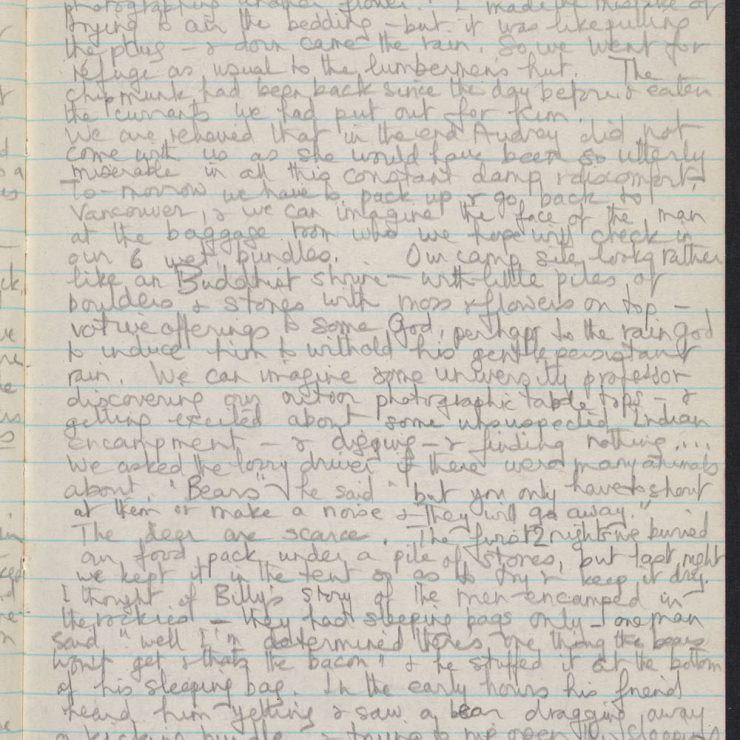 photographing another flower. I made the mistake of
trying to air the bedding - but it was like pulling
the plug - & down came the rain. So we went for
refuge as usual to the lumbermens hut. The
chipmunk had been back since the day before & eaten
the currents we had put out for him.
We are relieved that in the end Audrey did not
come with us as she would have been so utterly
miserable in all this constant damp & discomfort.
To-morrow we have to pack up & go back to
Vancouver, & we can imagine the face of the man
at the baggage room who we hope will check in
our 6 wet bundles. Our camp site looks rather
like an Buddhist shrine - with little piles of
boulders & stones with moss & flowers on top -
votive offerings to some God, perhaps to the rain god
to induce him to withold his gentle persistant
rain. We can imagine some university professor
discovering our outdoor photographic table tops - &
getting excited about some unsuspected Indian
encampment - & digging - & finding nothing....
We asked the lorry driver if there were many animals
about. "Bears" he said "but you only have to shout
at them or make a noise & they will go away."
The deer are scarce. The first 2 nights we buried
our food pack under a pile of stones, but last night
we kept it in the tent so as to try & keep it dry.
I thought of Billy's story of the men encamped in
the rockies - they had sleeping bags only - one man
said "well I'm determined theres one thing the bears
wont get & thats the bacon" & he stuffed it at the bottom
of his sleeping bag. In the early hours his friend
heard him yelling & saw a bear dragging away
a kicking bundle & trying to rip open